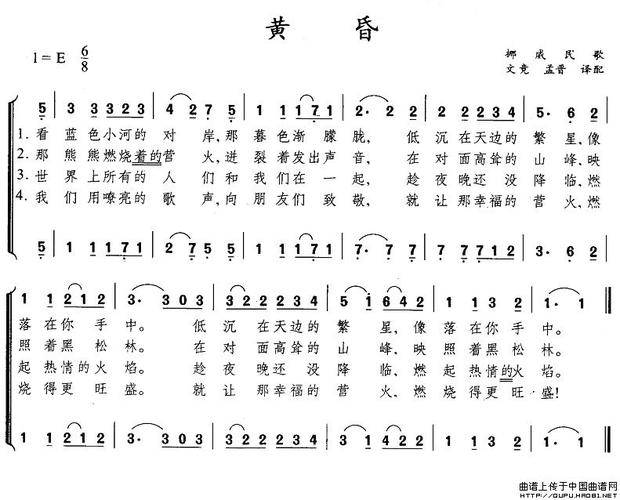 黄 昏
1=E 6/8
挪 威 民 歌
文竞 孟晋 译配
5 3 3 3323 4 2 7 5 1 1 1171 2· 2· 2 2 2212 5· 6 5
1. 看 蓝 色小河的 对 岸,那 暮色渐 朦 胧, 低 沉 在天边的 繁 星,像
2. 那 熊熊燃烧着的营 火,迸 裂着发出声 音, 在 对 面高耸的 山 峰,映
3. 世 界上所有的 人 们和我们在一 起, 趁 夜晚还 没 降 临,燃
4. 我 们用嘹亮的 歌 声,向 朋友们 致 敬, 就 让 那幸福的 营 火,燃
5 1 1 1171 2 7 5 5 1 1 1171 7· 7· 7 7 7712 3· 6 7
1 1 212 3· 303 2 2 2212 5 1 642 1 1 212 3· 303
落在你 手中。 低 沉 在天边的 繁 星,像 落在你 手中。
照着黑 松林。 在 对 面高耸的 山 峰、映 照着黑 松林。
起热情的火焰。 趁 夜 晚还没 降 临、燃 起热情的火焰。
烧得更 旺盛。 就 让 那幸福的 营 火、燃 烧得更 旺盛!
1 1 212 3· 303 2 2 2212 3 1 642 1 1 212 3· 303
曲谱上传于中国曲谱网
HTTP://QUPU.HAO81.NET